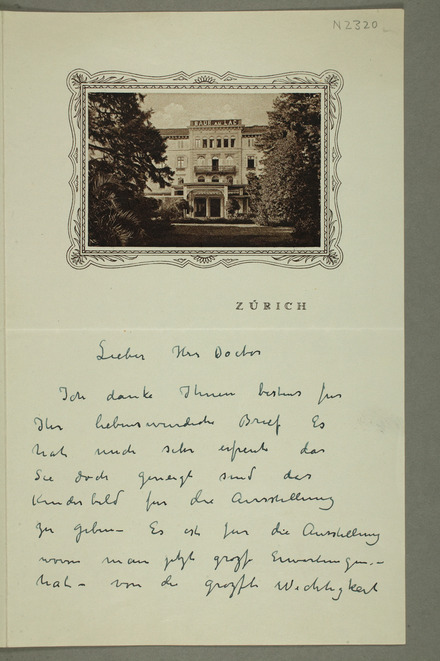 N2320
BAUR AU LAC
ZÜRICH
Lieber Herr Doctor
Ich danke Ihnen bestens fur
Ihr liebenswurdiche Brief Es
hat mich sehr erfreut das
Sie doch geneigt sind das
Kinderbild fur die Ausstellung
zu geben – Es ist fur die Ausstellung
wovon man jetzt grosse Erwartungen
hat – von der grossten Wichtigkeit